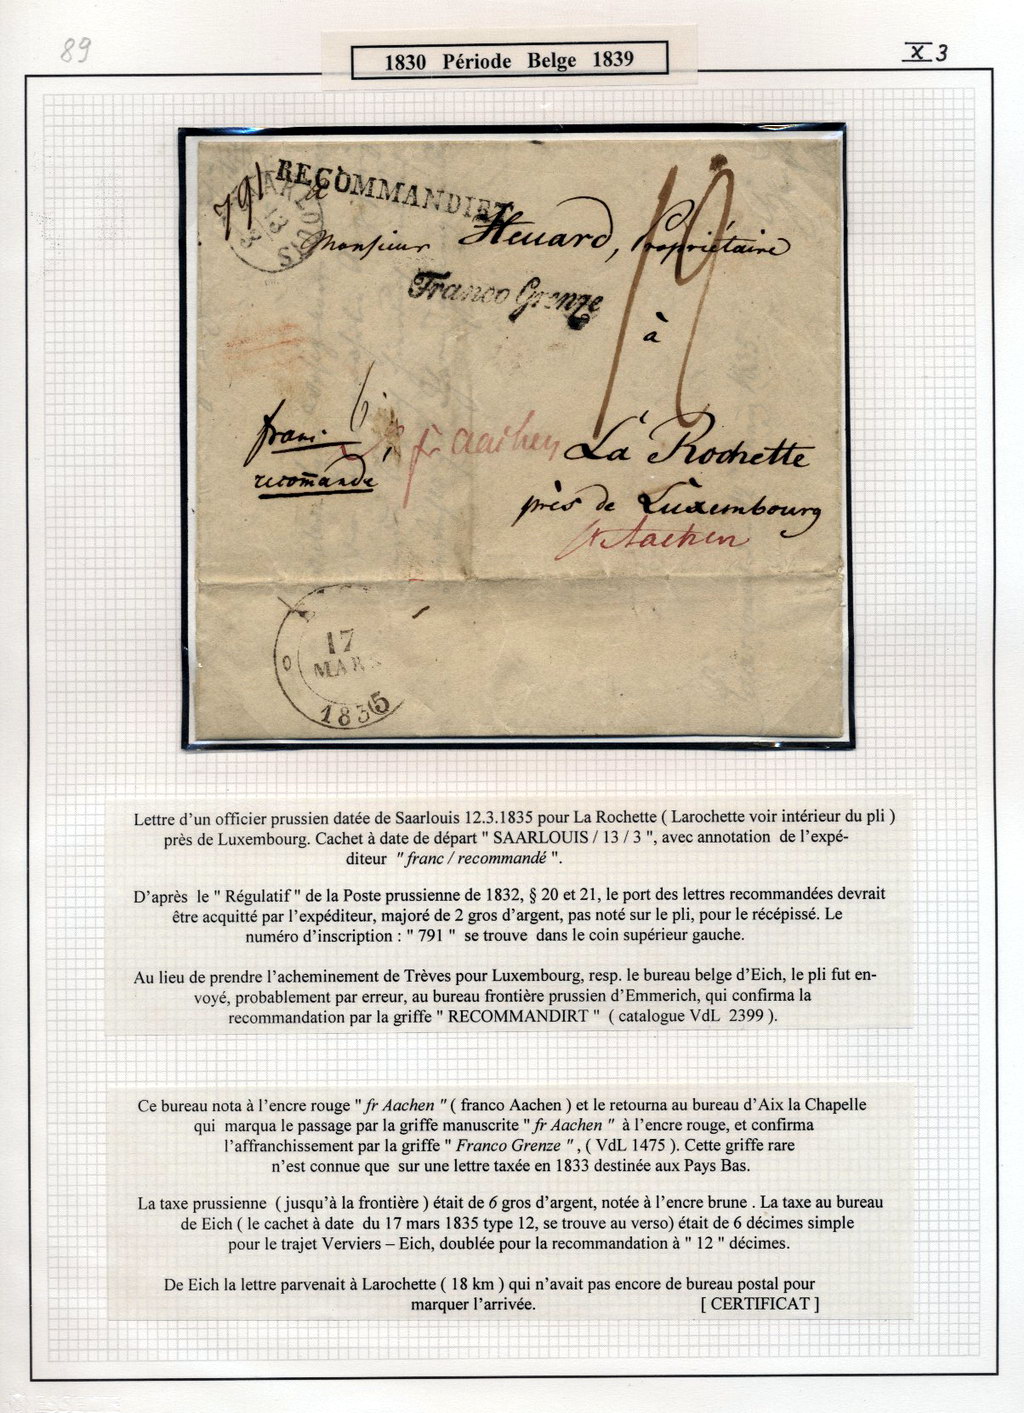 89
1830 Période Belge 1839
X 3
RECOMMANDIRT
791
SAARLOUIS
13
3
Monsieur Heuard, Propriétaire
Franco Grenze
12
à
6
franc.
fr Aachen
La Rochette
recom̄andé
près de Luxembourg
fr Aachen
17
MARS
1835
Lettre d'un officier prussien datée de Saarlouis 12.3.1835 pour La Rochette ( Larochette voir intérieur du pli )
près de Luxembourg. Cachet à date de départ " SAARLOUIS / 13 / 3 ", avec annotation de l'expé-
diteur " franc / recommandé ".
D'après le " Régulatif " de la Poste prussienne de 1832, § 20 et 21, le port des lettres recommandées devrait
être acquitté par l'expéditeur, majoré de 2 gros d'argent, pas noté sur le pli, pour le récépissé. Le
numéro d'inscription : " 791 " se trouve dans le coin supérieur gauche.
Au lieu de prendre l'acheminement de Trèves pour Luxembourg, resp. le bureau belge d'Eich, le pli fut en-
voyé, probablement par erreur, au bureau frontière prussien d'Emmerich, qui confirma la
recommandation par la griffe " RECOMMANDIRT " ( catalogue VdL 2399 ).
Ce bureau nota à l'encre rouge " fr Aachen " ( franco Aachen ) et le retourna au bureau d'Aix la Chapelle
qui marqua le passage par la griffe manuscrite " fr Aachen " à l'encre rouge, et confirma
l'affranchissement par la griffe " Franco Grenze " , ( VdL 1475 ). Cette griffe rare
n'est connue que sur une lettre taxée en 1833 destinée aux Pays Bas.
La taxe prussienne ( jusqu'à la frontière ) était de 6 gros d'argent, notée à l'encre brune . La taxe au bureau
de Eich ( le cachet à date du 17 mars 1835 type 12, se trouve au verso) était de 6 décimes simple
pour le trajet Verviers – Eich, doublée pour la recommandation à " 12 " décimes.
De Eich la lettre parvenait à Larochette ( 18 km ) qui n'avait pas encore de bureau postal pour
marquer l'arrivée. [ CERTIFICAT ]